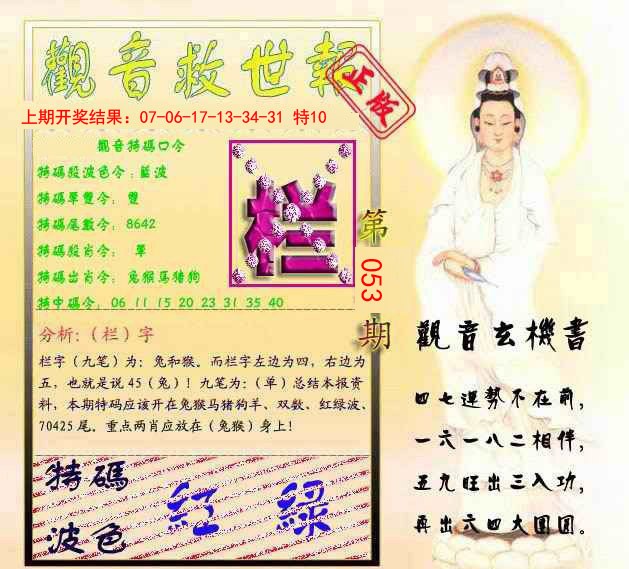 觀音救世報
正版
上期开奖结果：07-06-17-13-34-31 特10
觀音特碼口令
特碼段波色令：藍波
特碼單雙令： 雙
特碼尾數令：8642
特碼段肖令： 單
特碼出肖令： 兔猴馬猪狗
特中碼令：06 11 15 20 23 31 35 40
栏
第053期
分析：（栏）字
栏字（九笔）为：兔和猴。而栏字左边为四，右边为
五，也就是说 45（兔）！九笔为：（单）总结本报资
料，本期特码应该开在兔猴马猪狗羊、双数、红绿波、
70425 尾。重点两肖应放在（兔猴）身上！
特碼
波色
紅 綠
觀音玄機書
四七運勢不在前，
一六一八二相伴，
五九旺出三入功，
再出六四大團圓。